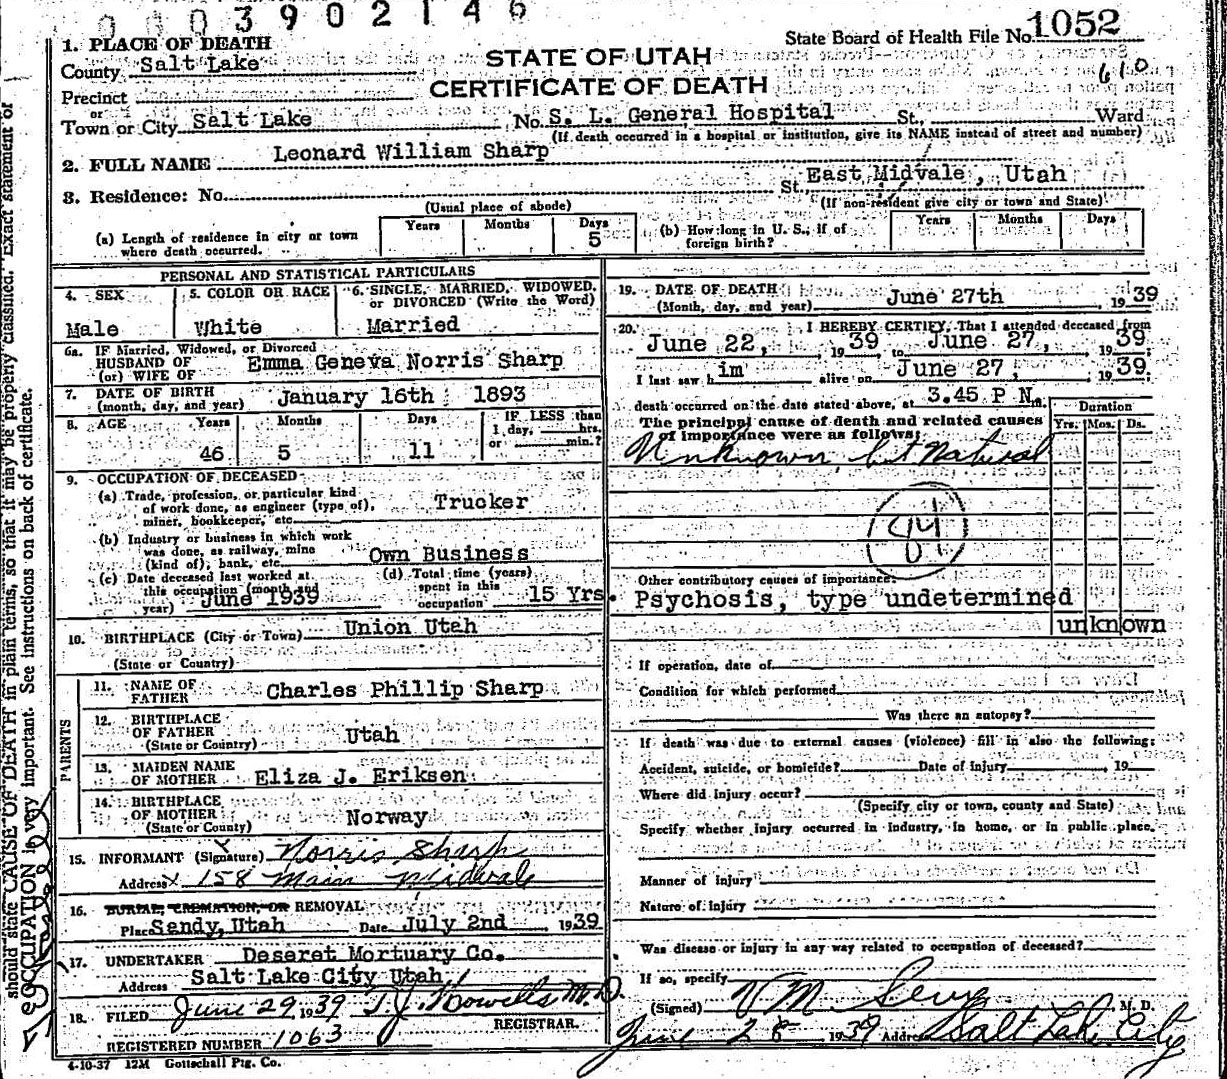 0003902146
State Board of Health File No. 1052
610
STATE OF UTAH
CERTIFICATE OF DEATH
1. PLACE OF DEATH
County Salt Lake
Precinct
or
Town or City Salt Lake No. S. L. General Hospital St., Ward
(If death occurred in a hospital or institution, give its NAME instead of street and number)
2. FULL NAME Leonard William Sharp
3. Residence: No. St. East Midvale, Utah
(Usual place of abode) (If non-resident give city or town and State)
(a) Length of residence in city or town where death occurred. Years Months Days 5
(b) How long in U. S., if of foreign birth? Years Months Days
PERSONAL AND STATISTICAL PARTICULARS
4. SEX Male
5. COLOR OR RACE White
6. SINGLE, MARRIED, WIDOWED, or DIVORCED (Write the Word) Married
6a. IF Married, Widowed, or Divorced
HUSBAND OF
(or) WIFE OF Emma Geneva Norris Sharp
7. DATE OF BIRTH
(month, day, and year) January 16th 1893
8. AGE Years 46 Months 5 Days 11 IF LESS than 1 day, hrs. or min.?
9. OCCUPATION OF DECEASED
(a) Trade, profession, or particular kind
of work done, as engineer (type of),
miner, bookkeeper, etc. Trucker
(b) Industry or business in which work
was done, as railway, mine
(kind of), bank, etc. Own Business
(c) Date deceased last worked at
this occupation (month and
year) June 1939
(d) Total time (years)
spent in this
occupation 15 Yrs.
10. BIRTHPLACE (City or Town) Union Utah
(State or Country)
PARENTS
11. NAME OF
FATHER Charles Phillip Sharp
12. BIRTHPLACE
OF FATHER
(State or Country) Utah
13. MAIDEN NAME
OF MOTHER Eliza J. Eriksen
14. BIRTHPLACE
OF MOTHER
(State or County) Norway
15. INFORMANT (Signature) Norris Sharp
Address x 158 Main Midvale
16. BURIAL, CREMATION, OR REMOVAL
Place Sandy, Utah Date July 2nd 1939
17. UNDERTAKER Deseret Mortuary Co.
Address Salt Lake City Utah
18. FILED June 29, 1939 T. J. Howells M.D.
REGISTRAR.
REGISTERED NUMBER 1063
4-10-37 12M Gottschall Ptg. Co.
19. DATE OF DEATH
(Month, day, and year) June 27th , 1939
20. I HEREBY CERTIFY, That I attended deceased from
June 22, 1939 to June 27, 1939
I last saw him alive on June 27, 1939.
death occurred on the date stated above, at 3.45 P M.
The principal cause of death and related causes
of importance were as follows:
Duration
Yrs. Mos. Ds.
Unknown, but Natural
84
Other contributory causes of importance:
Psychosis, type undetermined
unknown
If operation, date of
Condition for which performed
Was there an autopsy?
If death was due to external causes (violence) fill in also the following:
Accident, suicide, or homicide? Date of injury , 19
Where did injury occur?
(Specify city or town, county and State)
Specify whether injury occurred in industry, in home, or in public place.
Manner of injury
Nature of injury
Was disease or injury in any way related to occupation of deceased?
If so, specify
(Signed) V M M. D.
June 28 1939 Address Salt Lake City
should state CAUSE OF DEATH in plain terms, so that it may be properly classified. Exact statement of
OCCUPATION is very important. See instructions on back of certificate.